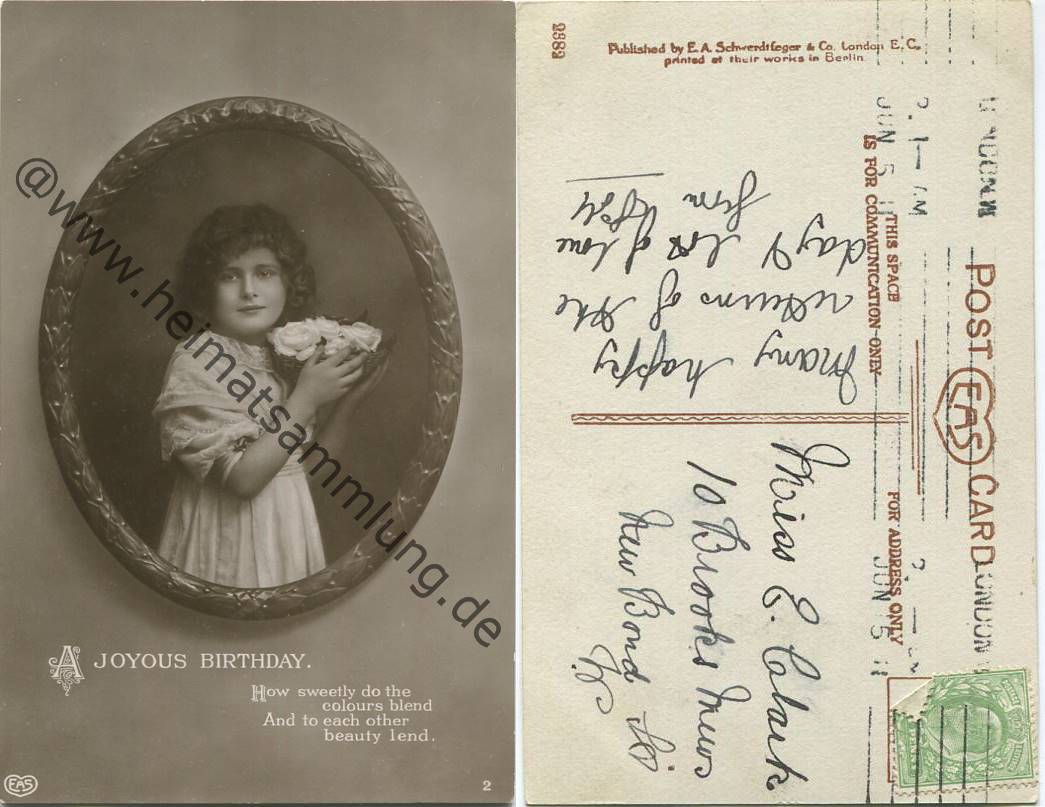 @www.heimatsammlung.de
A JOYOUS BIRTHDAY.
How sweetly do the
colours blend
And to each other
beauty lend.
EAS
2
Published by E. A. Schwerdtfeger & Co. London E. C.
printed at their works in Berlin
POST EAS CARD
THIS SPACE
IS FOR COMMUNICATION ONLY
FOR ADDRESS ONLY
LONDON W
JUN 5 11
LONDON
JUN 5 11
many happy
returns of the
day & lots of love
from
Miss E. Clark
10 Brooks Mews
New Bond St